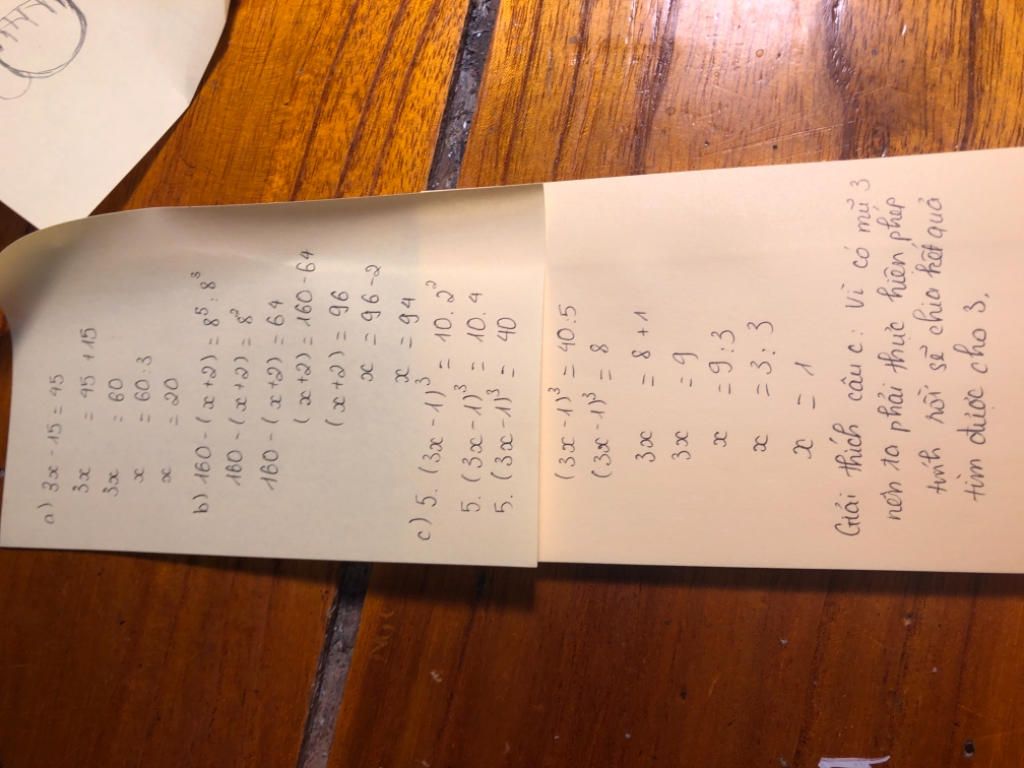 a) 3x - 15 = 45
3x = 45 + 15
3x = 60
x = 60 : 3
x = 20
b) 160 - (x + 2) = 8⁵ : 8³
160 - (x + 2) = 8²
160 - (x + 2) = 64
(x + 2) = 160 - 64
(x + 2) = 96
x = 96 - 2
x = 94
c) 5. (3x - 1)³ = 10. 2²
5. (3x - 1)³ = 10. 4
5. (3x - 1)³ = 40
(3x - 1)³ = 40 : 5
(3x - 1)³ = 8
3x = 8 + 1
3x = 9
x = 9 : 3
x = 3 : 3
x = 1
Giải thích câu c : Vì có mũ 3
nên ta phải thực hiện phép
tính rồi sẽ chia kết quả
tìm được cho 3.